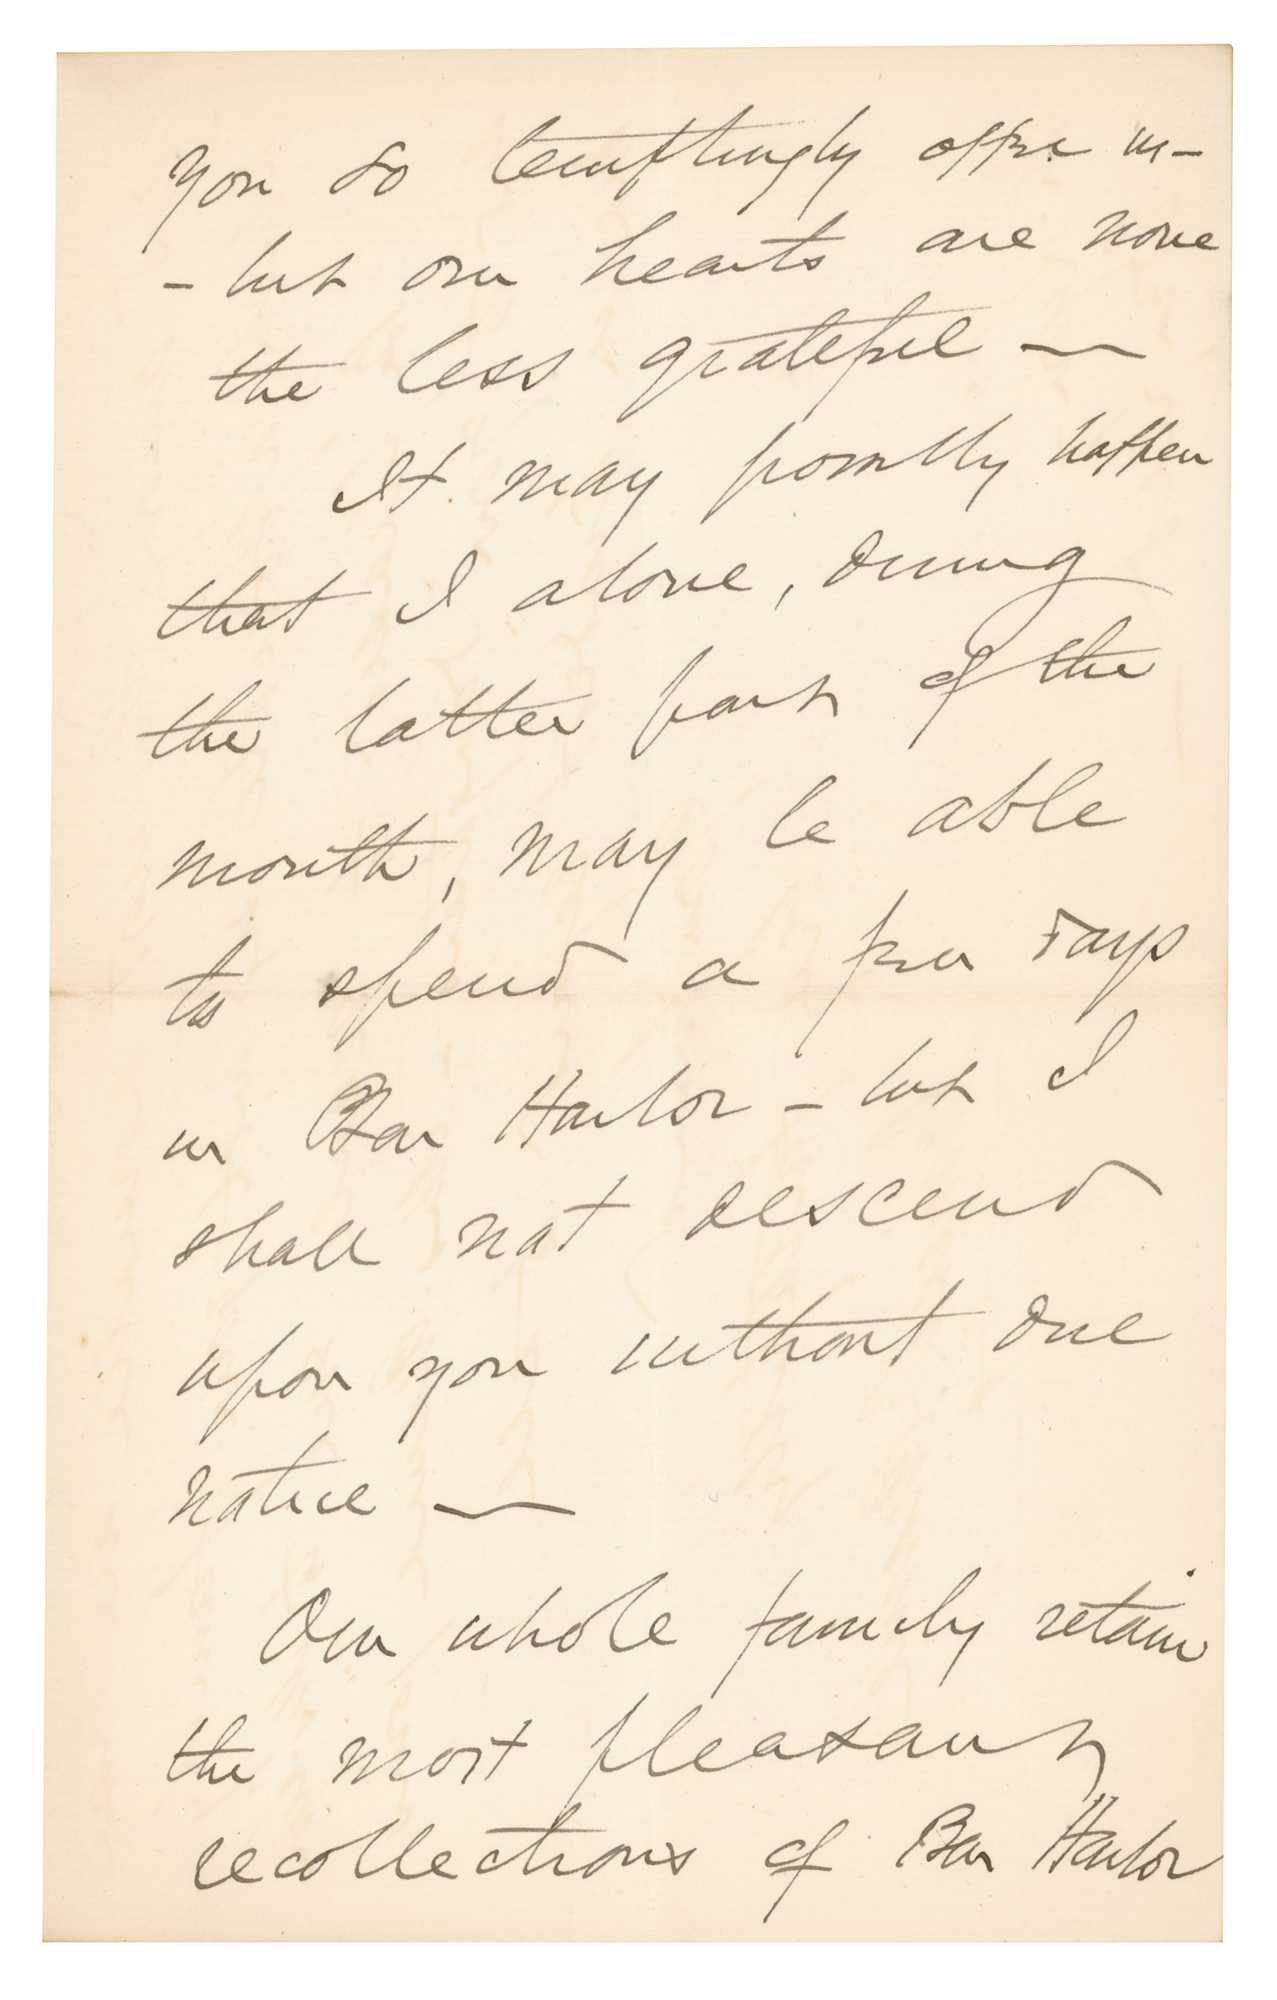 you so temptingly offer us -
- but our hearts are none
the less grateful —
It may possibly happen
that I alone, during
the latter part of the
month, may be able
to spend a few days
in Bar Harbor - but I
shall not descend
upon you without due
notice —
Our whole family retain
the most pleasant
recollections of Bar Harbor